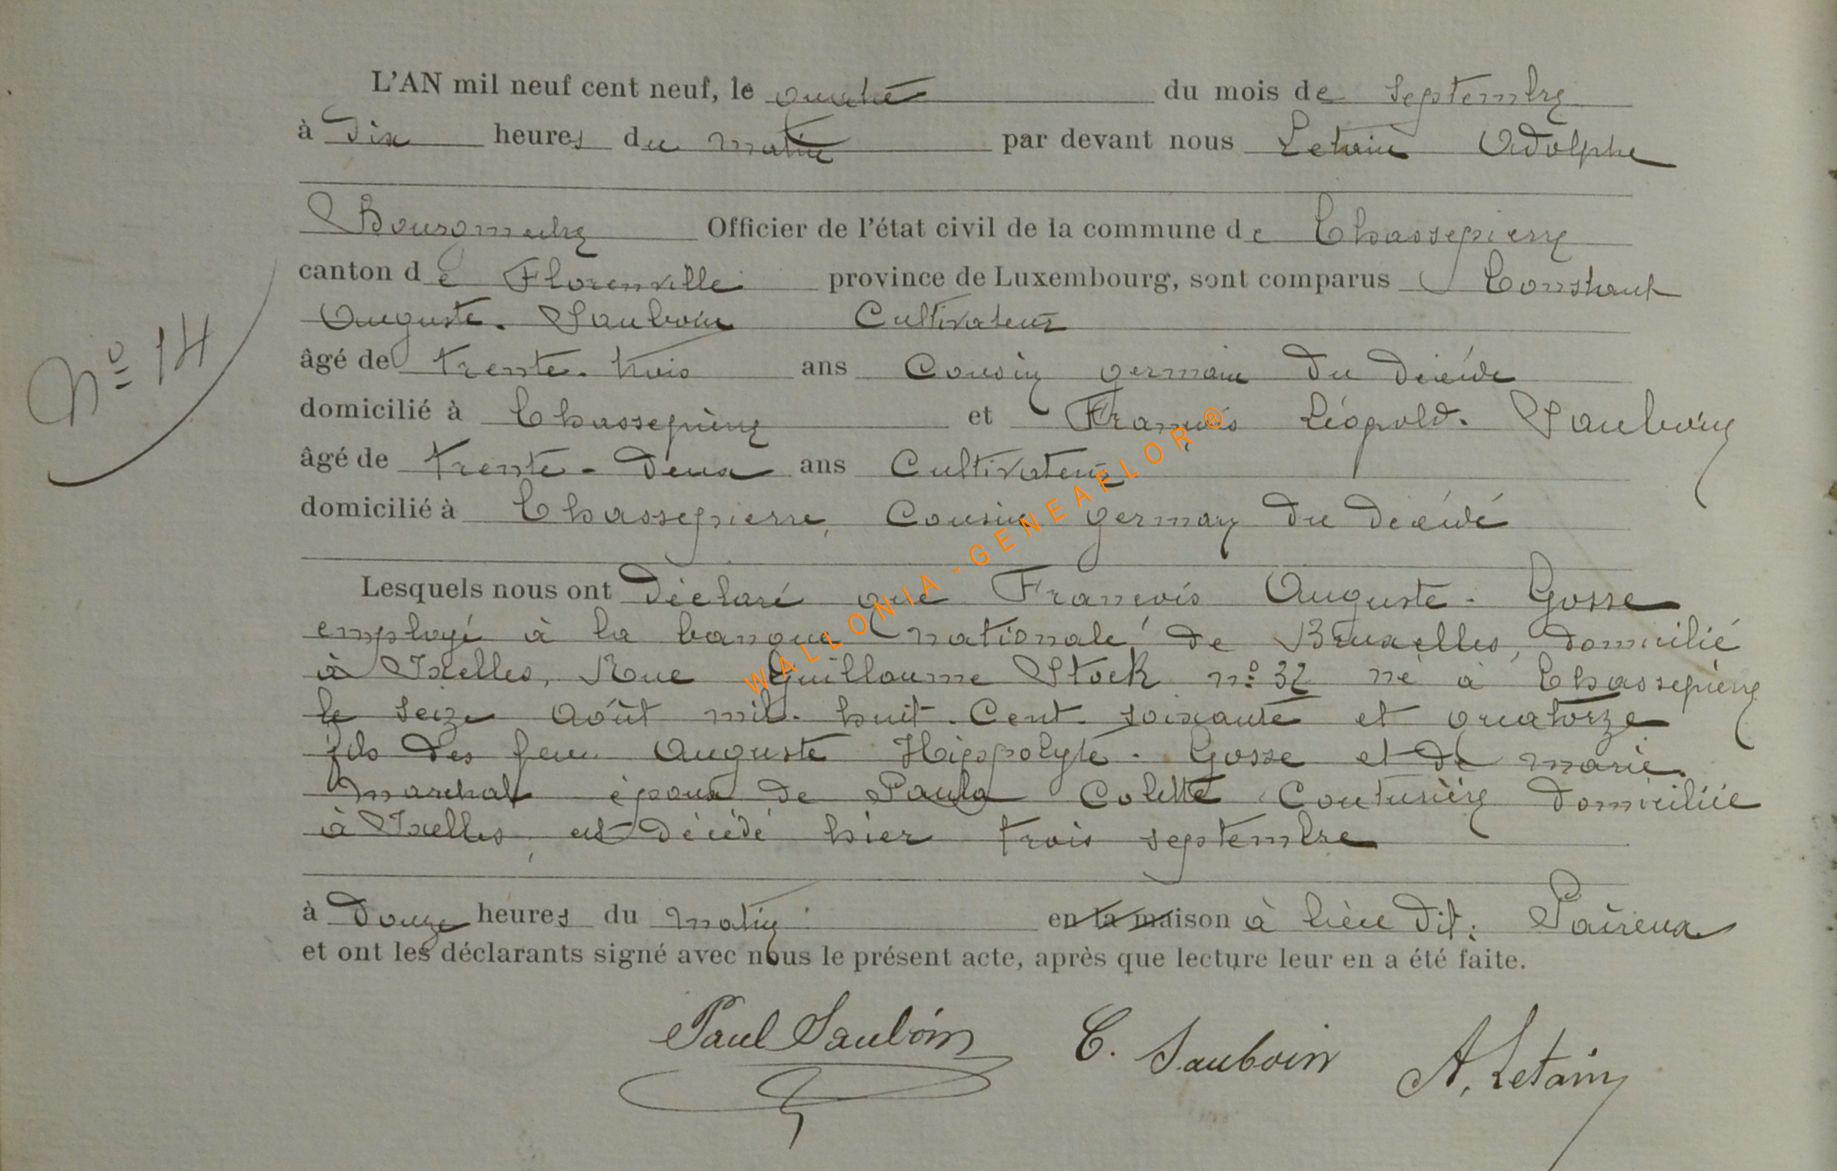 L'AN mil neuf cent neuf, le quatre du mois de septembre
à Dix heures du matin par devant nous Letain Adolphe
Bourgmestre Officier de l'état civil de la commune de Chassepierre
canton de Florenville province de Luxembourg, sont comparus Constant
Auguste. Sauboin Cultivateur
N° 14
âgé de trente-trois ans Cousin germain du décédé
domicilié à Chassepierre et François Léopold. Sauboin
âgé de trente-deux ans Cultivateur
domicilié à Chassepierre, Cousin germain du décédé
Lesquels nous ont déclaré que François Auguste. Gosse
employé à la banque nationale de Bruxelles, domicilié
à Ixelles, Rue Guillaume Stock n° 32 né à Chassepierre
le seize Août mil. huit. Cent. soixante et quatorze
fils des feu Auguste Hippolyte. Gosse et de marie.
Marchal époux de Paula Colette Couturière domiciliée
à Ixelles, est décédé hier trois septembre
à Douze heures du matin en la maison à lieu dit:
et ont les déclarants signé avec nous le présent acte, après que lecture leur en a été faite.
Paul Sauboin C. Sauboin A. Letain
WALLONIA - GENEAFLOR ®